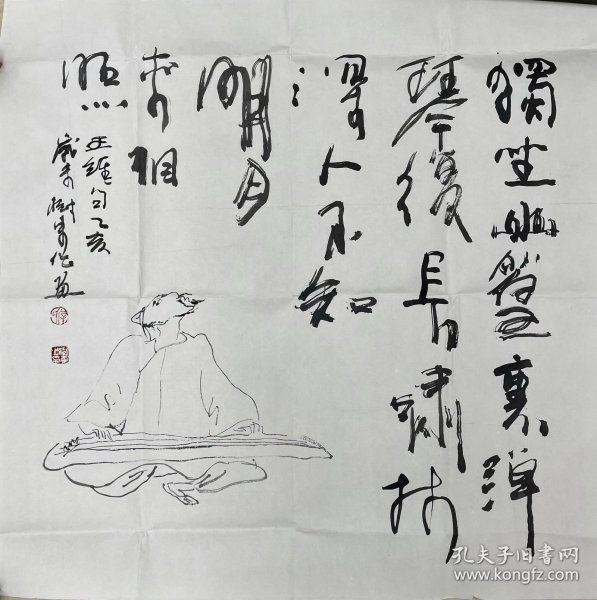 獨坐幽篁裏彈
琴復長嘯林
深人不知
明月
来相
照
王維句乙亥
孔夫子旧书网
www.kongfz.com